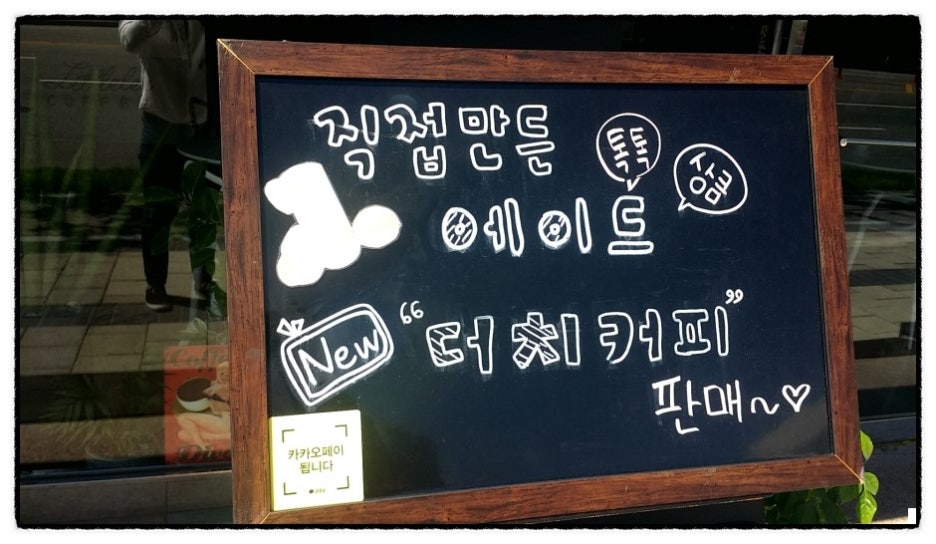 직접만든
톡톡
상큼
에이드
New "더치커피"
판매~♡
카카오페이
됩니다